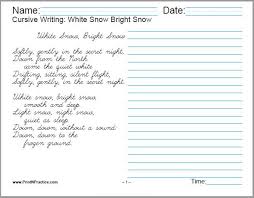 Name: Date:
Cursive Writing: White Snow Bright Snow
White Snow, Bright Snow
Softly, gently in the secret night,
Down from the North
came the quiet white
Drifting, sifting, silent flight,
Softly, gently, in the secret night.
White snow, bright snow,
smooth and deep
Light snow, night snow,
quiet as sleep
Down, down, without a sound;
Down, down, to the
frozen ground.
www.PrintNPractice.com
- 1 -
Time: